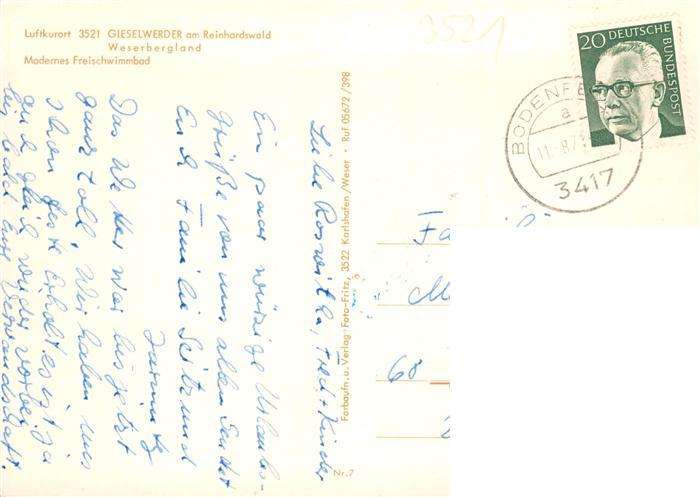 Luftkurort 3521 GIESELWERDER am Reinhardswald
Weserbergland
Modernes Freischwimmbad
3521
20 DEUTSCHE BUNDESPOST
BODENFE
a
11.-8.7
3417
Liebe Roswitha, Fred + Kinder
Ein paar würzige Urlaubs-
grüße von uns allen sendet
Familie
Das Wetter war bis jetzt
ganz toll. Wir haben uns
schon gut erholt es ist ja
auch gleich wieder vorbei
bis bald Eure Verwandschaft.
Farbaufn. u. Verlag · Foto-Fritz, 3522 Karlshafen/Weser · Ruf 05672/398
Nr. 7
Fa
M
68